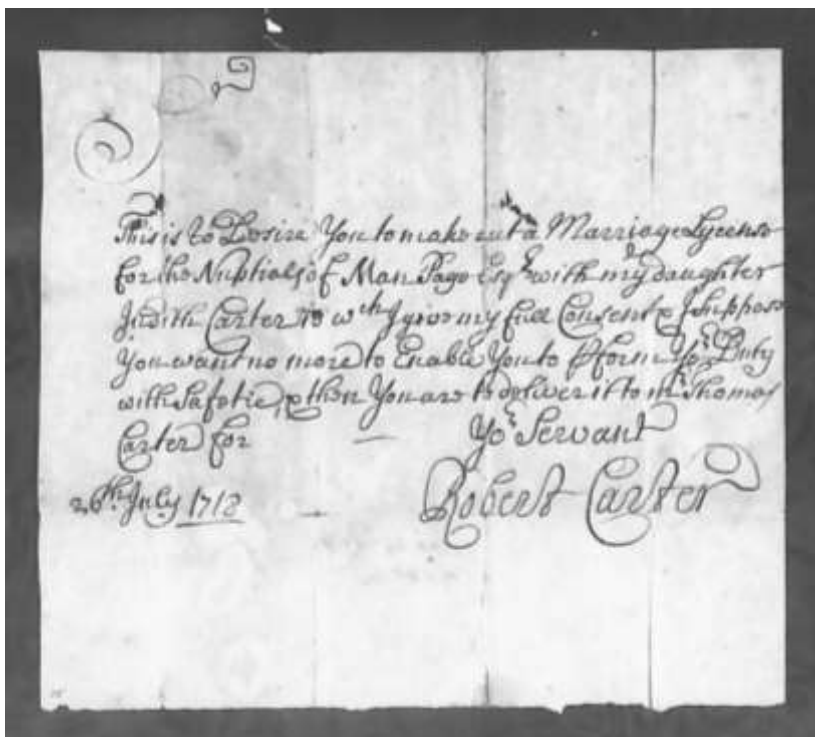 This is to Desire You to make out a Marriage Lycense
for the Nuptials of Man Page Esqr. with my daughter
Judith Carter to wch I give my full Consent & I suppose
You want no more to Enable You to pform Yor. Duty
with Safetie, & then You are to deliver it to mr. Thomas
Carter for
Yor. Servant
Robert Carter
26th. July 1718